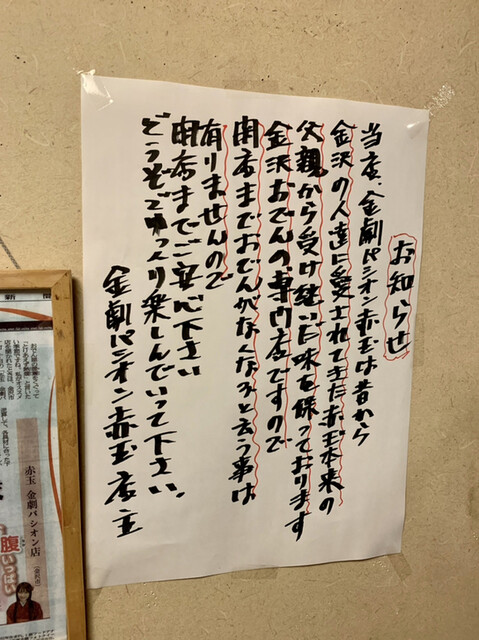 お知らせ
当店、金劇パシオン赤玉は昔から
金沢の人達に愛されてきた赤玉本来の
父親から受け継いだ味を保っております
金沢おでんの専門店ですので
閉店までおでんがなくなると云う事は
有りませんので
閉店までご安心下さい
どうぞごゆっくり楽しんでいって下さい。
金劇パシオン赤玉店主
新聞
赤玉 金劇パシオン店
腹
いっぱい